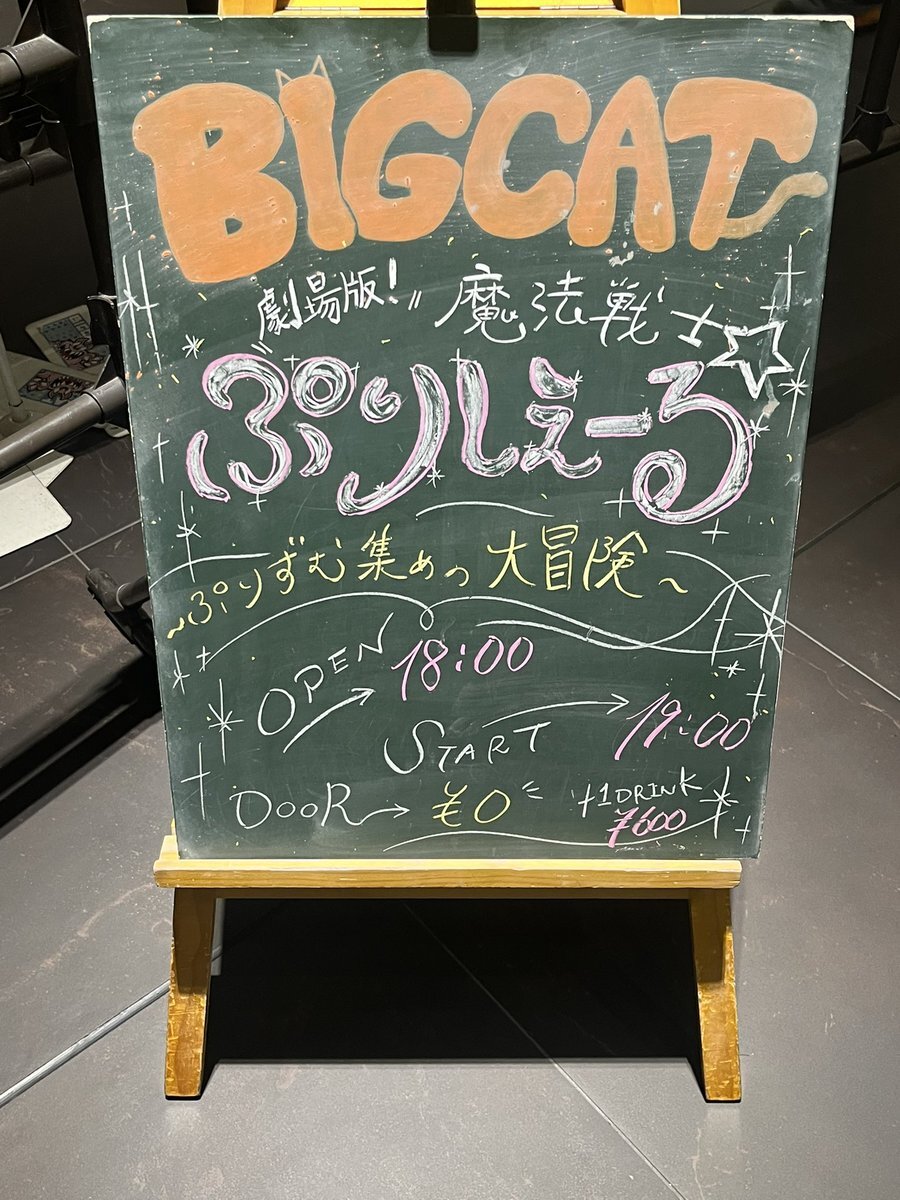 BIGCAT
劇場版! 魔法戦士☆
ぷりしぇーる
~ぷりずむ集めの大冒険~
OPEN → 18:00
START → 19:00
DOOR → ¥0 +1DRINK ¥600